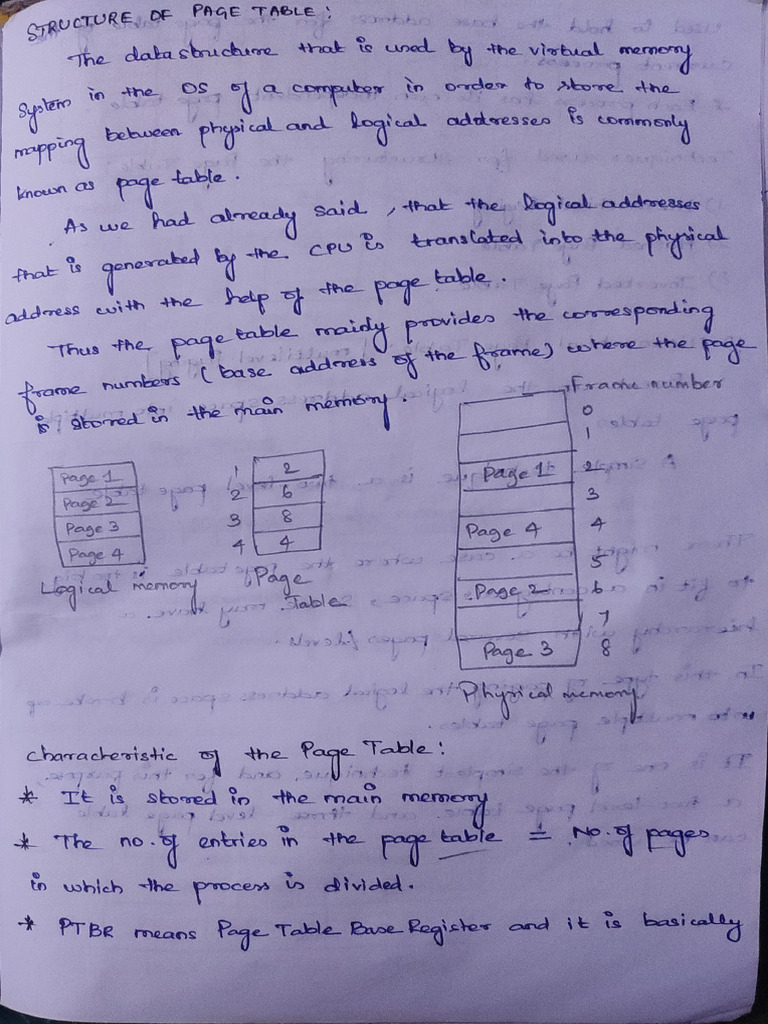 STRUCTURE OF PAGE TABLE:
The datastructure that is used by the virtual memory
System in the OS of a computer in order to store the
mapping between physical and logical addresses is commonly
known as page table.
As we had already said, that the logical addresses
that is generated by the CPU is translated into the physical
address with the help of the page table.
Thus the page table mainly provides the corresponding
frame numbers (base address of the frame) where the page
is stored in the main memory.
Frame number
Page 1
Page 2
Page 3
Page 4
Logical memory
1 2
2 6
3 8
4 4
Page
Table
0
1
Page 1 2
3
Page 4 4
5
Page 2 6
7
Page 3 8
Physical memory
Characteristic of the Page Table:
* It is stored in the main memory
* The no. of entries in the page table = No. of pages
in which the process is divided.
* PTBR means Page Table Base Register and it is basically